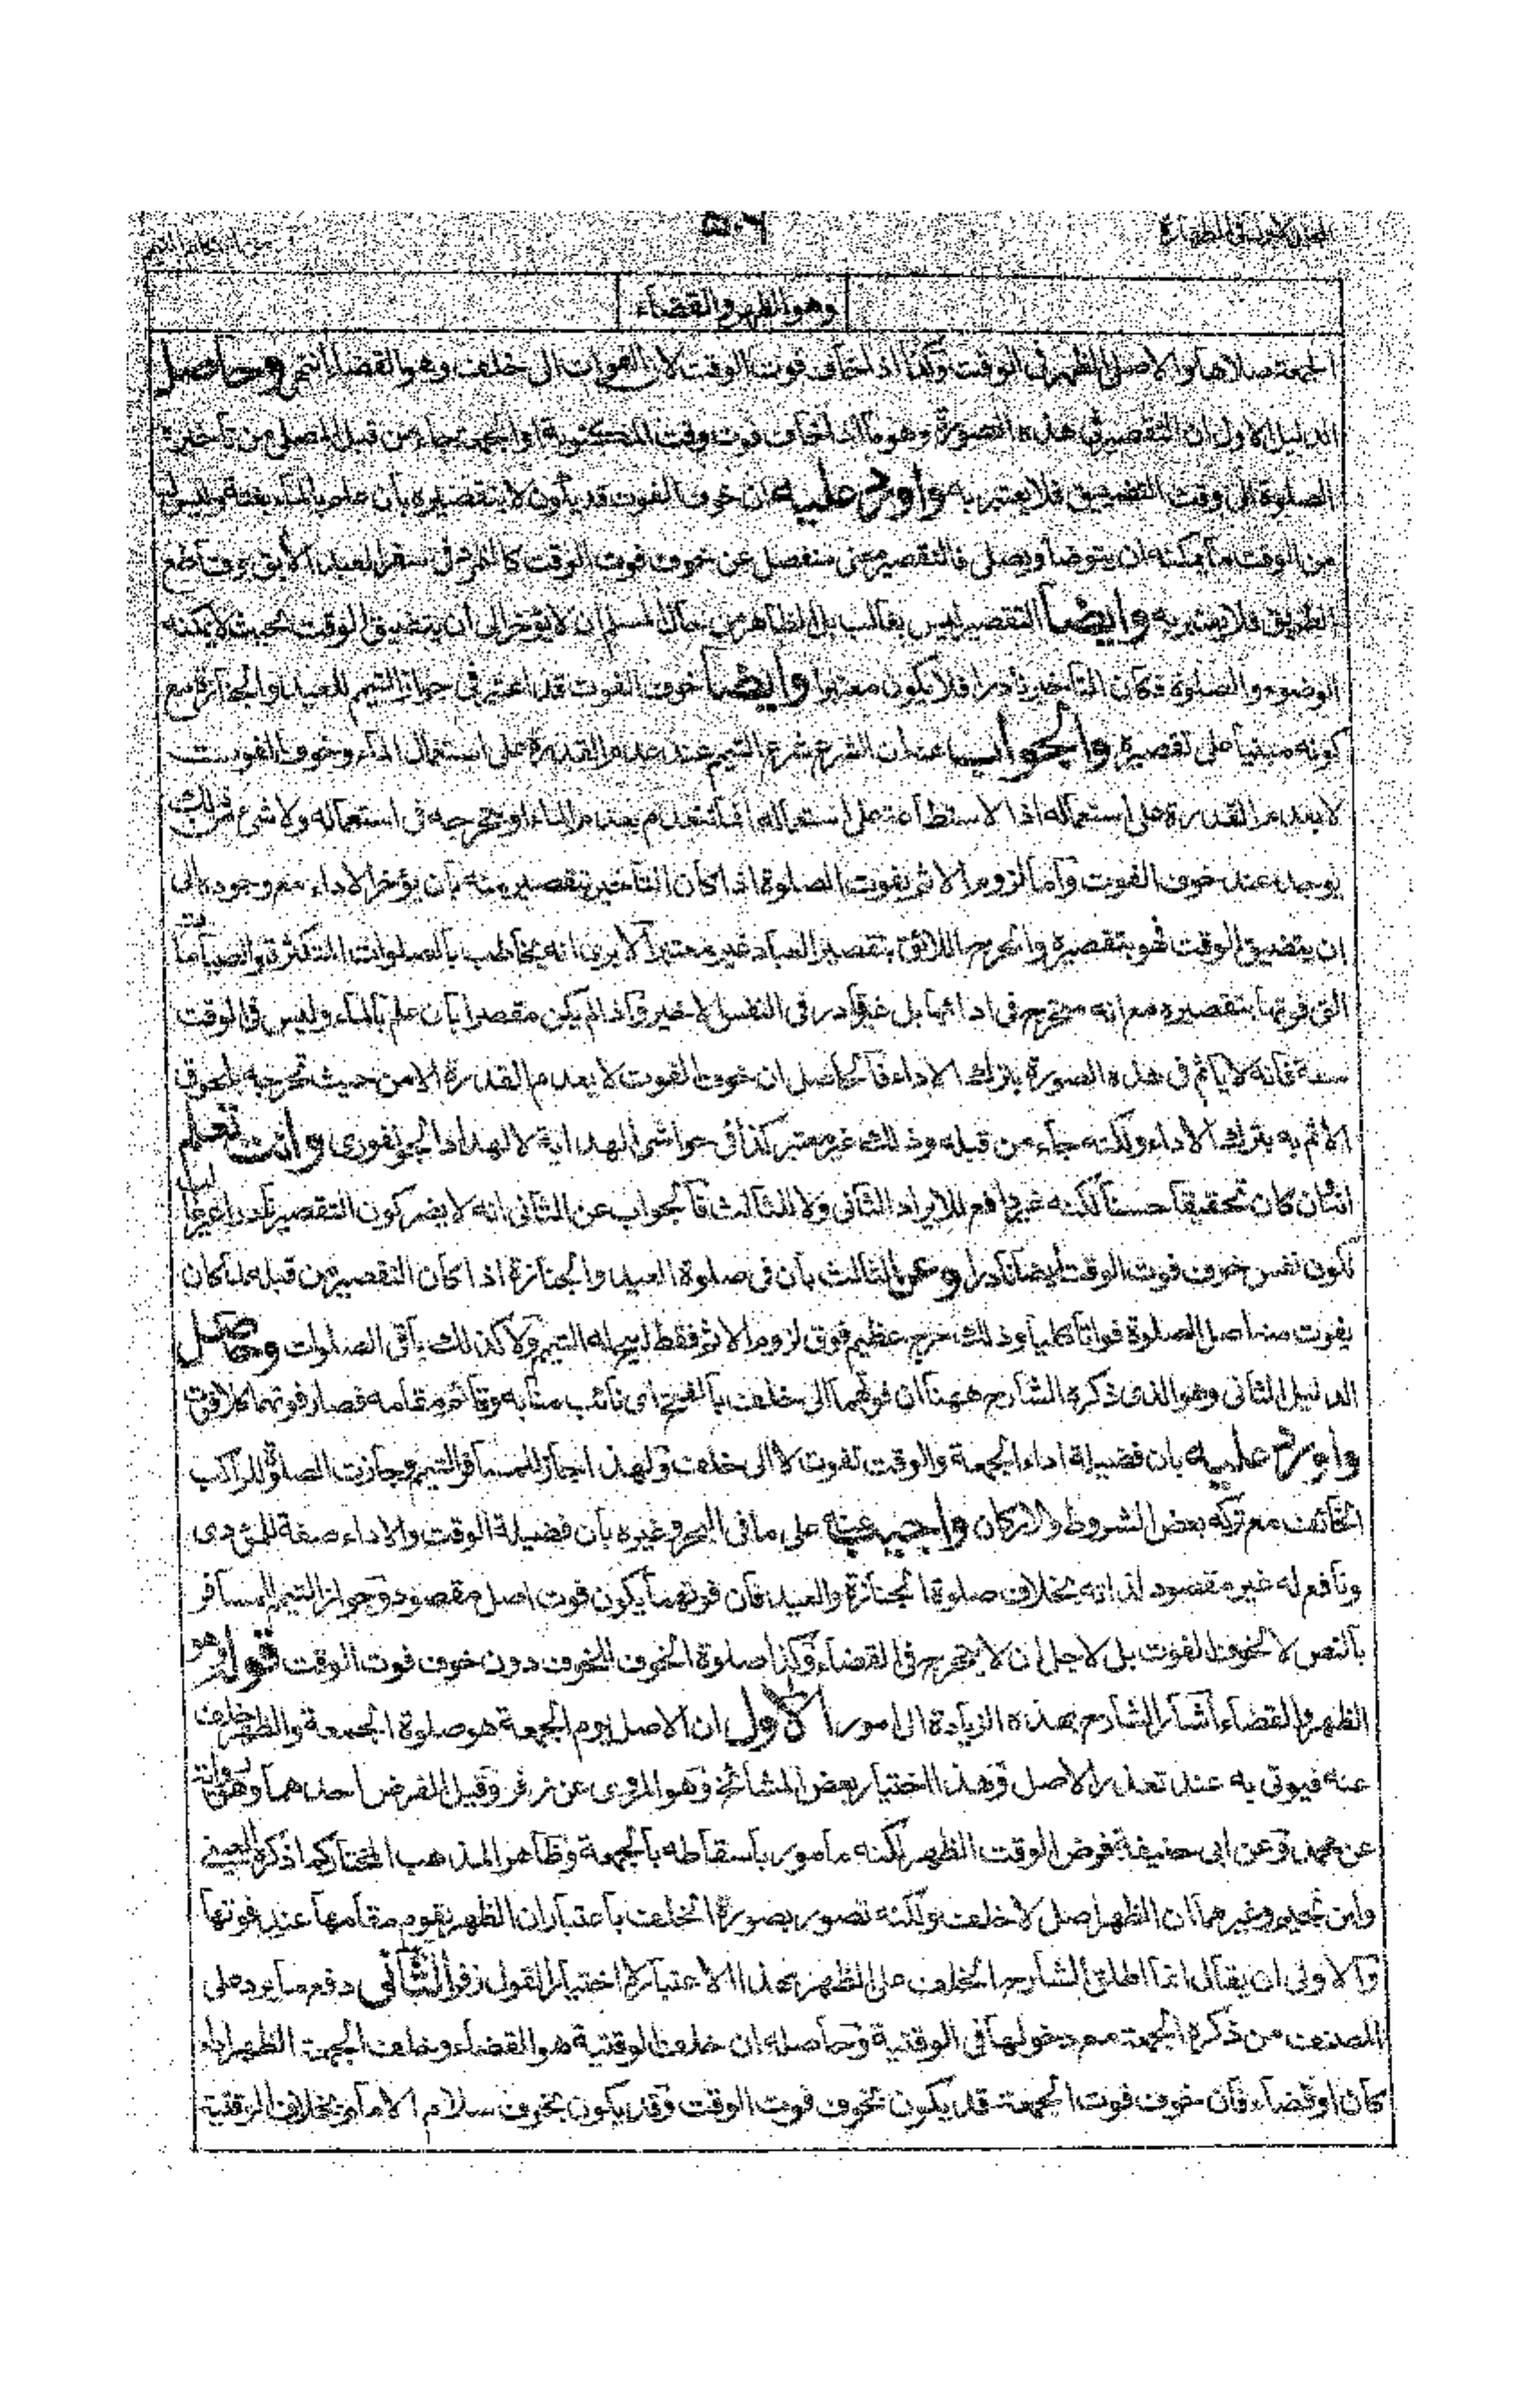 ٥٠٦
وهو الظهر والقضاء
الجمعة صلاها والا صلى الظهر فى الوقت وكذا اذا خاف فوت الوقت لان الفوات الى خلف وهو القضاء انتهى وحاصل
الدليل الاول ان التقصير فى هذه الصورة وهو ما اذا خاف فوت وقت المكتوبة او الجمعة جاء من قبل المصلى من تأخيره
الصلوة الى وقت التضييق فلا يعتبر به واورد عليه ان خوف الفوت قد يكون لا بتقصيره بأن علم بالماء بغتة وليس
من الوقت ما يمكنه ان يتوضأ ويصلى فالتقصير معنى منفصل عن خوف فوت الوقت كالتمرد فى سفر العبد الأبق وقاطع
الطريق فلا يعتبر به وايضا التقصير ليس بغالب بل الظاهر من حال المسلم ان لا يؤخر الى أن يتضيق الوقت بحيث لا يمكنه
الوضوء والصلوة فكان التأخير نادرا فلا يكون معتبرا وايضا خوف الفوت قد اعتبر فى جواز التيمم للعيد والجنازة مع
كونه مبنيا على تقصيره والجواب عنه ان الشرع شرع التيمم عند عدم القدرة على استعمال الماء وخوف الفوت
لا يعدم القدرة على استعماله اذ الاستطاعة على استعماله انما تنعدم بعدم الماء او بتحرجه فى استعماله ولا شئ من ذلك
يوجد عند خوف الفوت وأما لزوم الاثم بفوت الصلوة اذا كان التأخير بتقصير منه بأن يؤخر الاداء مع وجوده الى
ان يتضيق الوقت فهو بتقصيره والحرج اللائق بتقصير العباد غير معتبر ألا يرى انه يخاطب بالصلوات المتكثرة والصيامات
التى فوتها بتقصيره مع انه متحرج فى ادائها بل غير قادر فى النفس لا خير واذا لم يكن مقصرا بأن علم بالماء وليس فى الوقت
سعة فانه لا يأثم فى هذه الصورة بترك الاداء فالحاصل ان خوف الفوت لا يعدم القدرة الا من حيث تحرجه بلحوق
الاثم به بترك الاداء ولكنه جاء من قبله وذلك غير معتبر كذا فى حواشى الهداية لالهداد الجونفورى وانت تعلم
انه وان كان تحقيقا حسنا لكنه غير دافع للايراد الثانى ولا للثالث فالجواب عن الثانى انه لا يضر كون التقصير نادرا
لكون نفس خوف فوت الوقت أيضا نادرا وعن الثالث بأن فى صلوة العيد والجنازة اذا كان التقصير من قبله لما كان
يفوت منه اصل الصلوة فواتا كليا وذلك حرج عظيم فوق لزوم الاثم فقط ابيح له التيمم ولا كذلك باقى الصلوات وحاصل
الدليل الثانى وهو الذى ذكره الشارح ههنا ان فوتهما الى خلف بالفتح اى نائب منابه وقائم مقامه فصار فوتهما كلا فوت
واورد عليه بان فضيلة اداء الجمعة والوقت تفوت لا الى خلف ولهذا جاز للمسافر التيمم وجازت الصلوة للراكب
الخائف مع تركه بعض الشروط والاركان واجيب عنه على ما فى البحر وغيره بأن فضيلة الوقت والاداء صفة للمؤدى
وتابع له غير مقصود لذاته بخلاف صلوة الجنازة والعيد فان فوتهما يكون فوت اصل مقصود وجواز التيمم للمسافر
بالنص لا لخوف الفوت بل لاجل ان لا يتحرج فى القضاء وكذا صلوة الخوف للخوف دون خوف فوت الوقت قوله وهو
الظهر والقضاء أشار الشارح بهذه الزيادة الى امور الأول ان الاصل يوم الجمعة هو صلوة الجمعة والظهر خلف
عنه فيوتى به عند تعذر الاصل وهذا اختيار بعض المشائخ وهو المروى عن زفر وقيل الفرض احدهما وهو رواية
عن محمد وعن ابى حنيفة فرض الوقت الظهر لكنه مأمور باسقاطه بالجمعة وظاهر المذهب المختار كما ذكره العينى
وابن نجيم وغيرهما ان الظهر اصل لا خلف ولكنه تصور بصورة الخلف باعتبار ان الظهر يقوم مقامها عند فوتها
والاولى ان يقال انما اطلق الشارح الخلف على الظهر بهذا الاعتبار لا اختيارا لقول زفر الثانى دفع ما يرد على
المصنف من ذكره الجمعة مع دخولها فى الوقتية وحاصله ان خلف الوقتية هو القضاء وخلف الجمعة الظهر اداء
كان او قضاء فان خوف فوت الجمعة قد يكون بخوف فوت الوقت وقد يكون بخوف سلام الامام بخلاف الوقتية